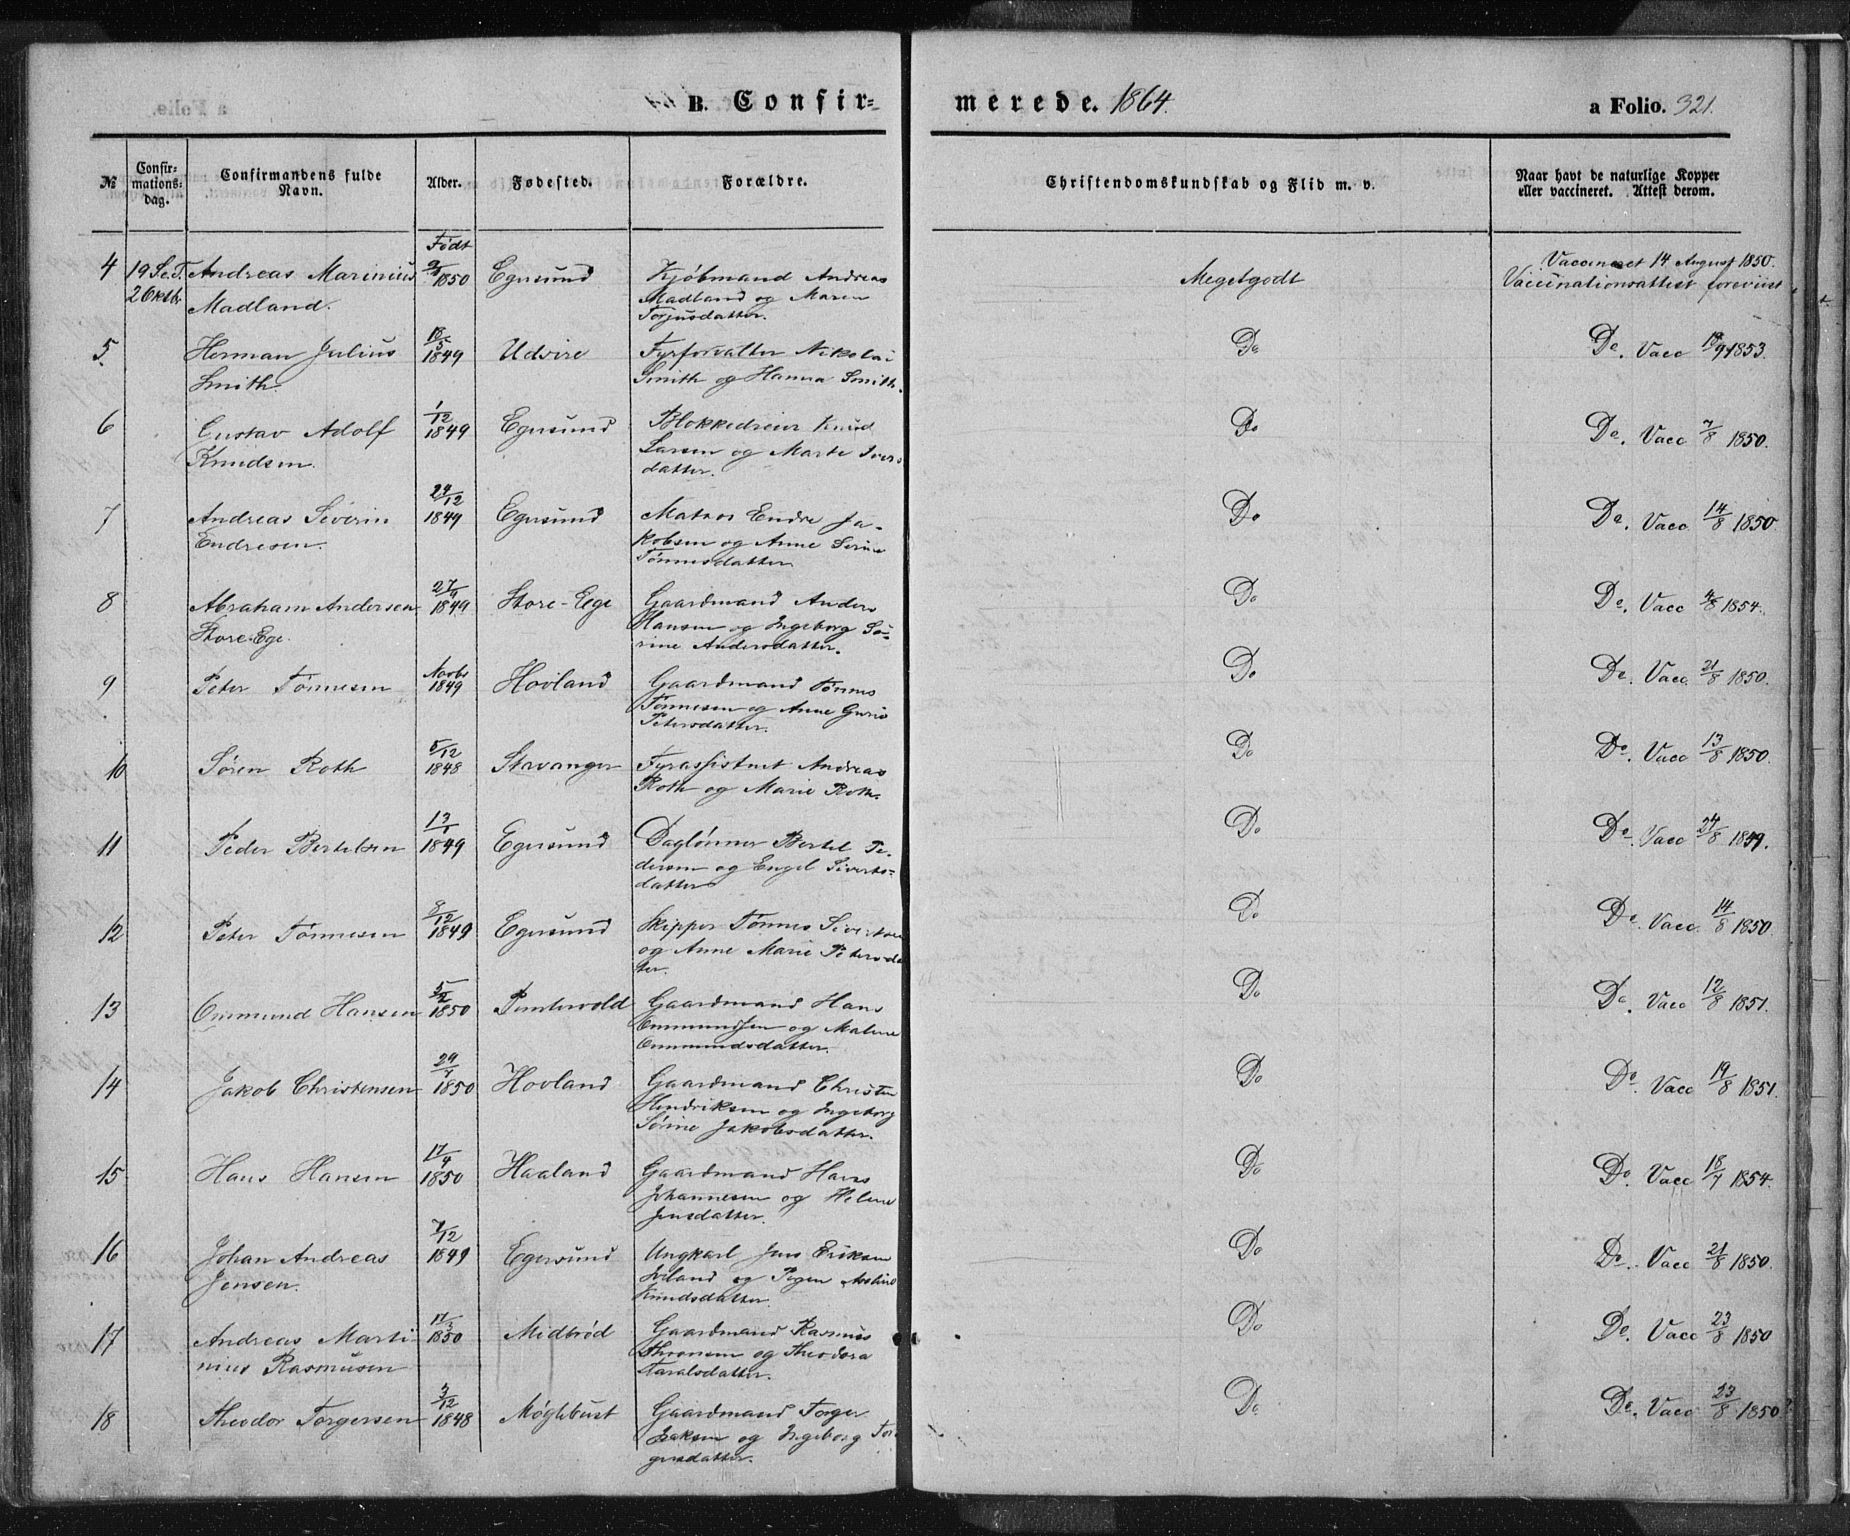 B. Confir=
merede. 1864.
a Folio. 321.
№
Confir-
mations-
dag.
Confirmandens fulde
Navn.
Alder.
Fødested.
Forældre.
Christendomskundskab og Flid m. v.
Naar havt de naturlige Kopper
eller vaccineret. Attest derom.
4
19 S.e.T.
2 Oktbr
Andreas Marinius
Madland.
Født
1850
Egersund
Kjøbmand Andreas
Madland og Maren
Torjusdatter.
Megetgodt
Vaccineret 14 August 1850.
Vaccinationsattest foreviist
5
Herman Julius
Smith.
1849
Udsire
Fyrforvalter Nikolai
Smith og Hanna Smith.
Do
Do. Vacc 1853.
6
Gustav Adolf
Knudsen.
1/12
1849
Egersund
Blokkedreier Knud
Larsen og Marte Ivers
datter.
Do
Do. Vacc 7/8 1850.
7
Andreas Severin
Endresen.
29/12
1849
Egersund
Matros Endre Ja-
kobsen og Anne Serine
Tønnesdatter
Do
Do. Vacc 14/8 1850.
8
Abraham Andersen
Store-Ege.
1849
Store-Ege
Gaardmand Anders
Hansen og Ingeborg Sø-
rine Andersdatter.
Do
Do. Vacc 4/8 1854.
9
Peter Tønnesen
Novbr
1849
Hovland
Gaardmand Tønnes
Tønnesen og Anne Gurie
Petersdatter.
Do
Do. Vacc. 21/8 1850.
10
Søren Roth
5/12
1848
Stavanger
Fyrassistent Andreas
Roth og Marie Roth.
Do
Do. Vacc 13/8 1850.
11
Peder Bertelsen
1849
Egersund
Daglønner Bertel Pe-
dersen og Engel Siverts-
datter
Do
Do. Vacc 24/8
12
Peter Tønnesen
8/12
1849
Egersund
Skipper Tønnes Sivertsen
og Anne Marie Petersda
tter.
Do
Do. Vacc. 14/8 1850.
13
Ommund Hansen
1850
Gaardmand Hans
Ommundsen og Malene
Ommundsdatter.
Do
Do. Vacc 12/8 1851.
14
Jakob Christensen
1850
Hovland
Gaardmand Christen
Hendriksen og Ingeborg
Sørine Jakobsdatter.
Do
Do. Vacc 19/8 1851.
15
Hans Hansen
1850
Haaland
Gaardmand Hans
Johannesen og Helene
Jensdatter.
Do
Do. Vacc 18/7 1854.
16
Johan Andreas
Jensen.
7/12
1849
Egersund
Ungkarl Jens Eriksen
og Pigen
Knudsdatter.
Do
Do. Vacc 21/8 1850.
17
Andreas Marti
nius Rasmusen
17/3
1850
Midbrød
Gaardmand Rasmus
Thronsen og Theodora
Taralsdatter.
Do
Do. Vacc 23/8 1850
18
Theodor Torgersen
3/12
1848
Møglebust
Gaardmand Torger
og Ingeborg Tor
gersdatter.
Do.
Do. Vacc 23/8 1850?